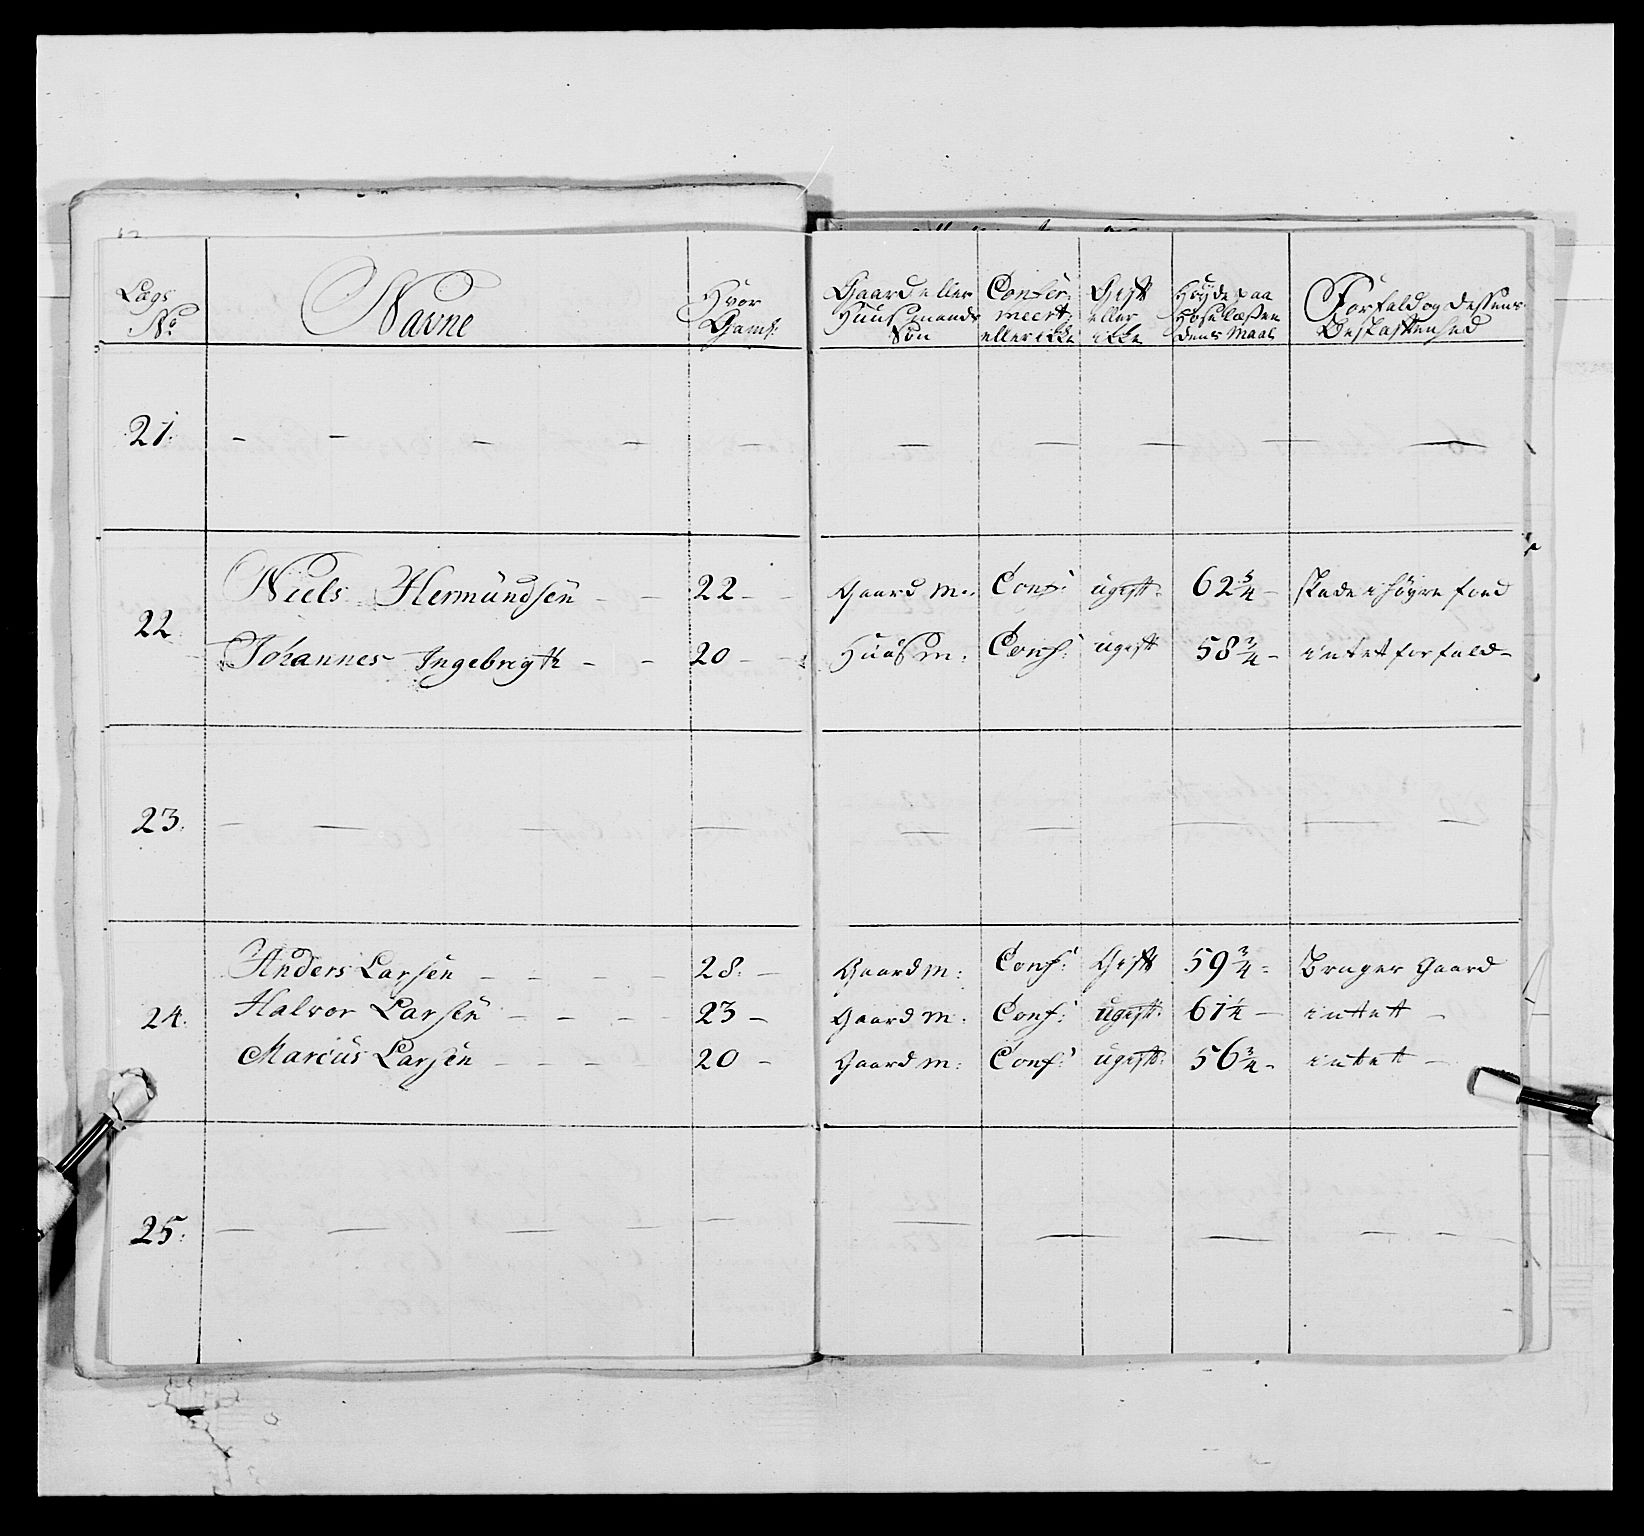 Lægs No | Navne | Hvor Gaml: | Gaard eller Huusmands Søn | Confirmeert: eller ikke | Gift eller ikke | Høyde paa Hoselæsten dens Maal | Forfald og dessens Beskaffenhed
21: | - | - | - | - | - | - | -
22 | Niels Hermundsen - - | 22 - | Gaard M: | Conf: | ugift | 62 3/4 - | skade i høyre foed
Johannes Ingebregth - - | 20 - - | Huusm: | Conf: | ugift | 58 3/4 - | intet forfald -
23. | - | - | - | - | - | - | -
24. | Anders Larsen - - - - | 28. - | Gaardm: | Conf: | Gift | 59 3/4 - | Bruger Gaard
Halvor Larsen - - - - | 23 - | Gaardm: | Conf: | ugift: | 61 1/4 - | intett -
Marcus Larsen - - - - | 20 - | Gaardm: | Conf: | ugift: | 56 3/4 - | intett -
25: | - | - | - | - | - | - | -